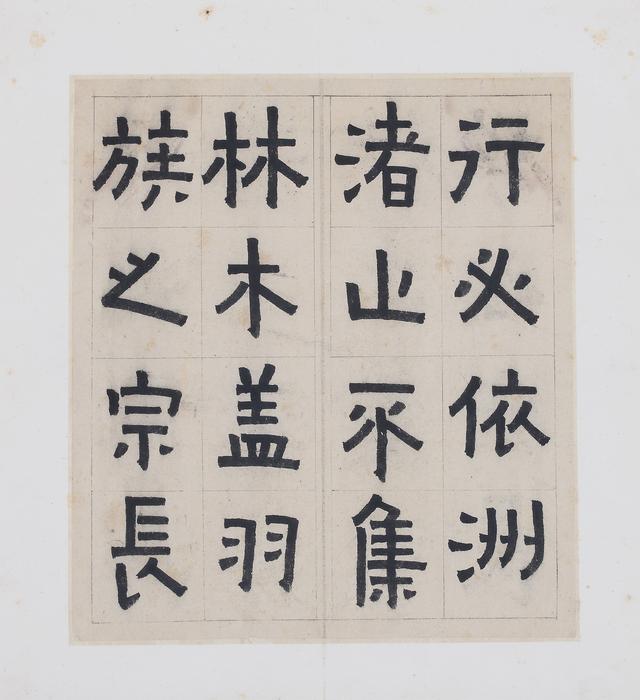 行必依洲
渚止不集
林木盖羽
族之宗長